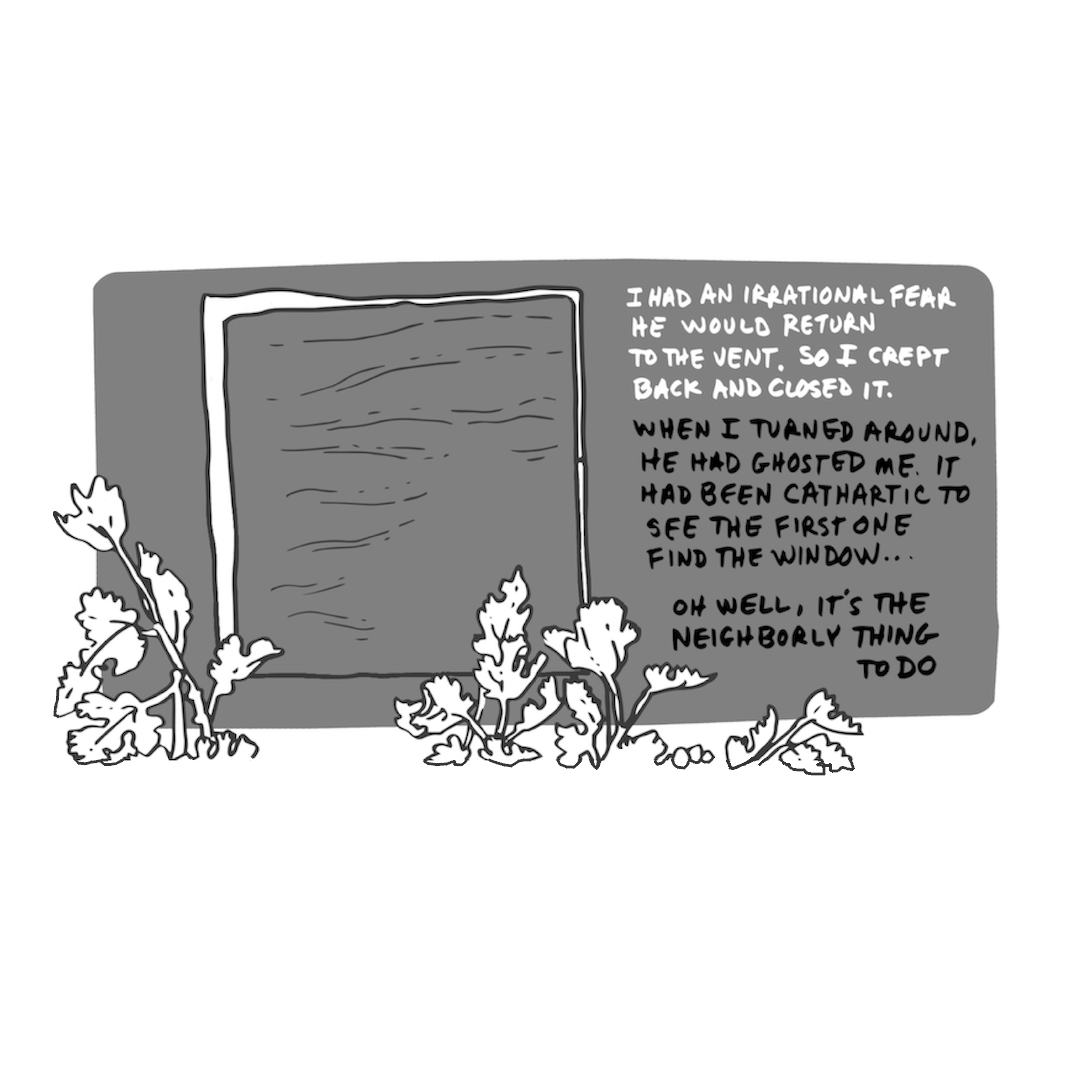 I HAD AN IRRATIONAL FEAR
HE WOULD RETURN
TO THE VENT. SO I CREPT
BACK AND CLOSED IT.
WHEN I TURNED AROUND,
HE HAD GHOSTED ME. IT
HAD BEEN CATHARTIC TO
SEE THE FIRST ONE
FIND THE WINDOW...
OH WELL, IT'S THE
NEIGHBORLY THING
TO DO